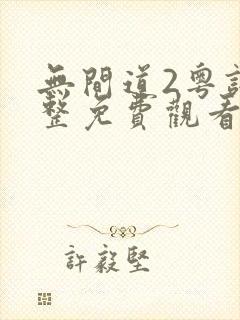 無間道2粵
整免費觀看
許毅堅